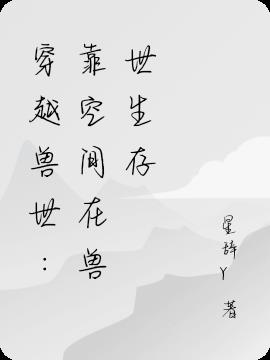 穿越兽世：
靠空间在兽
世生存
星辞Y 著